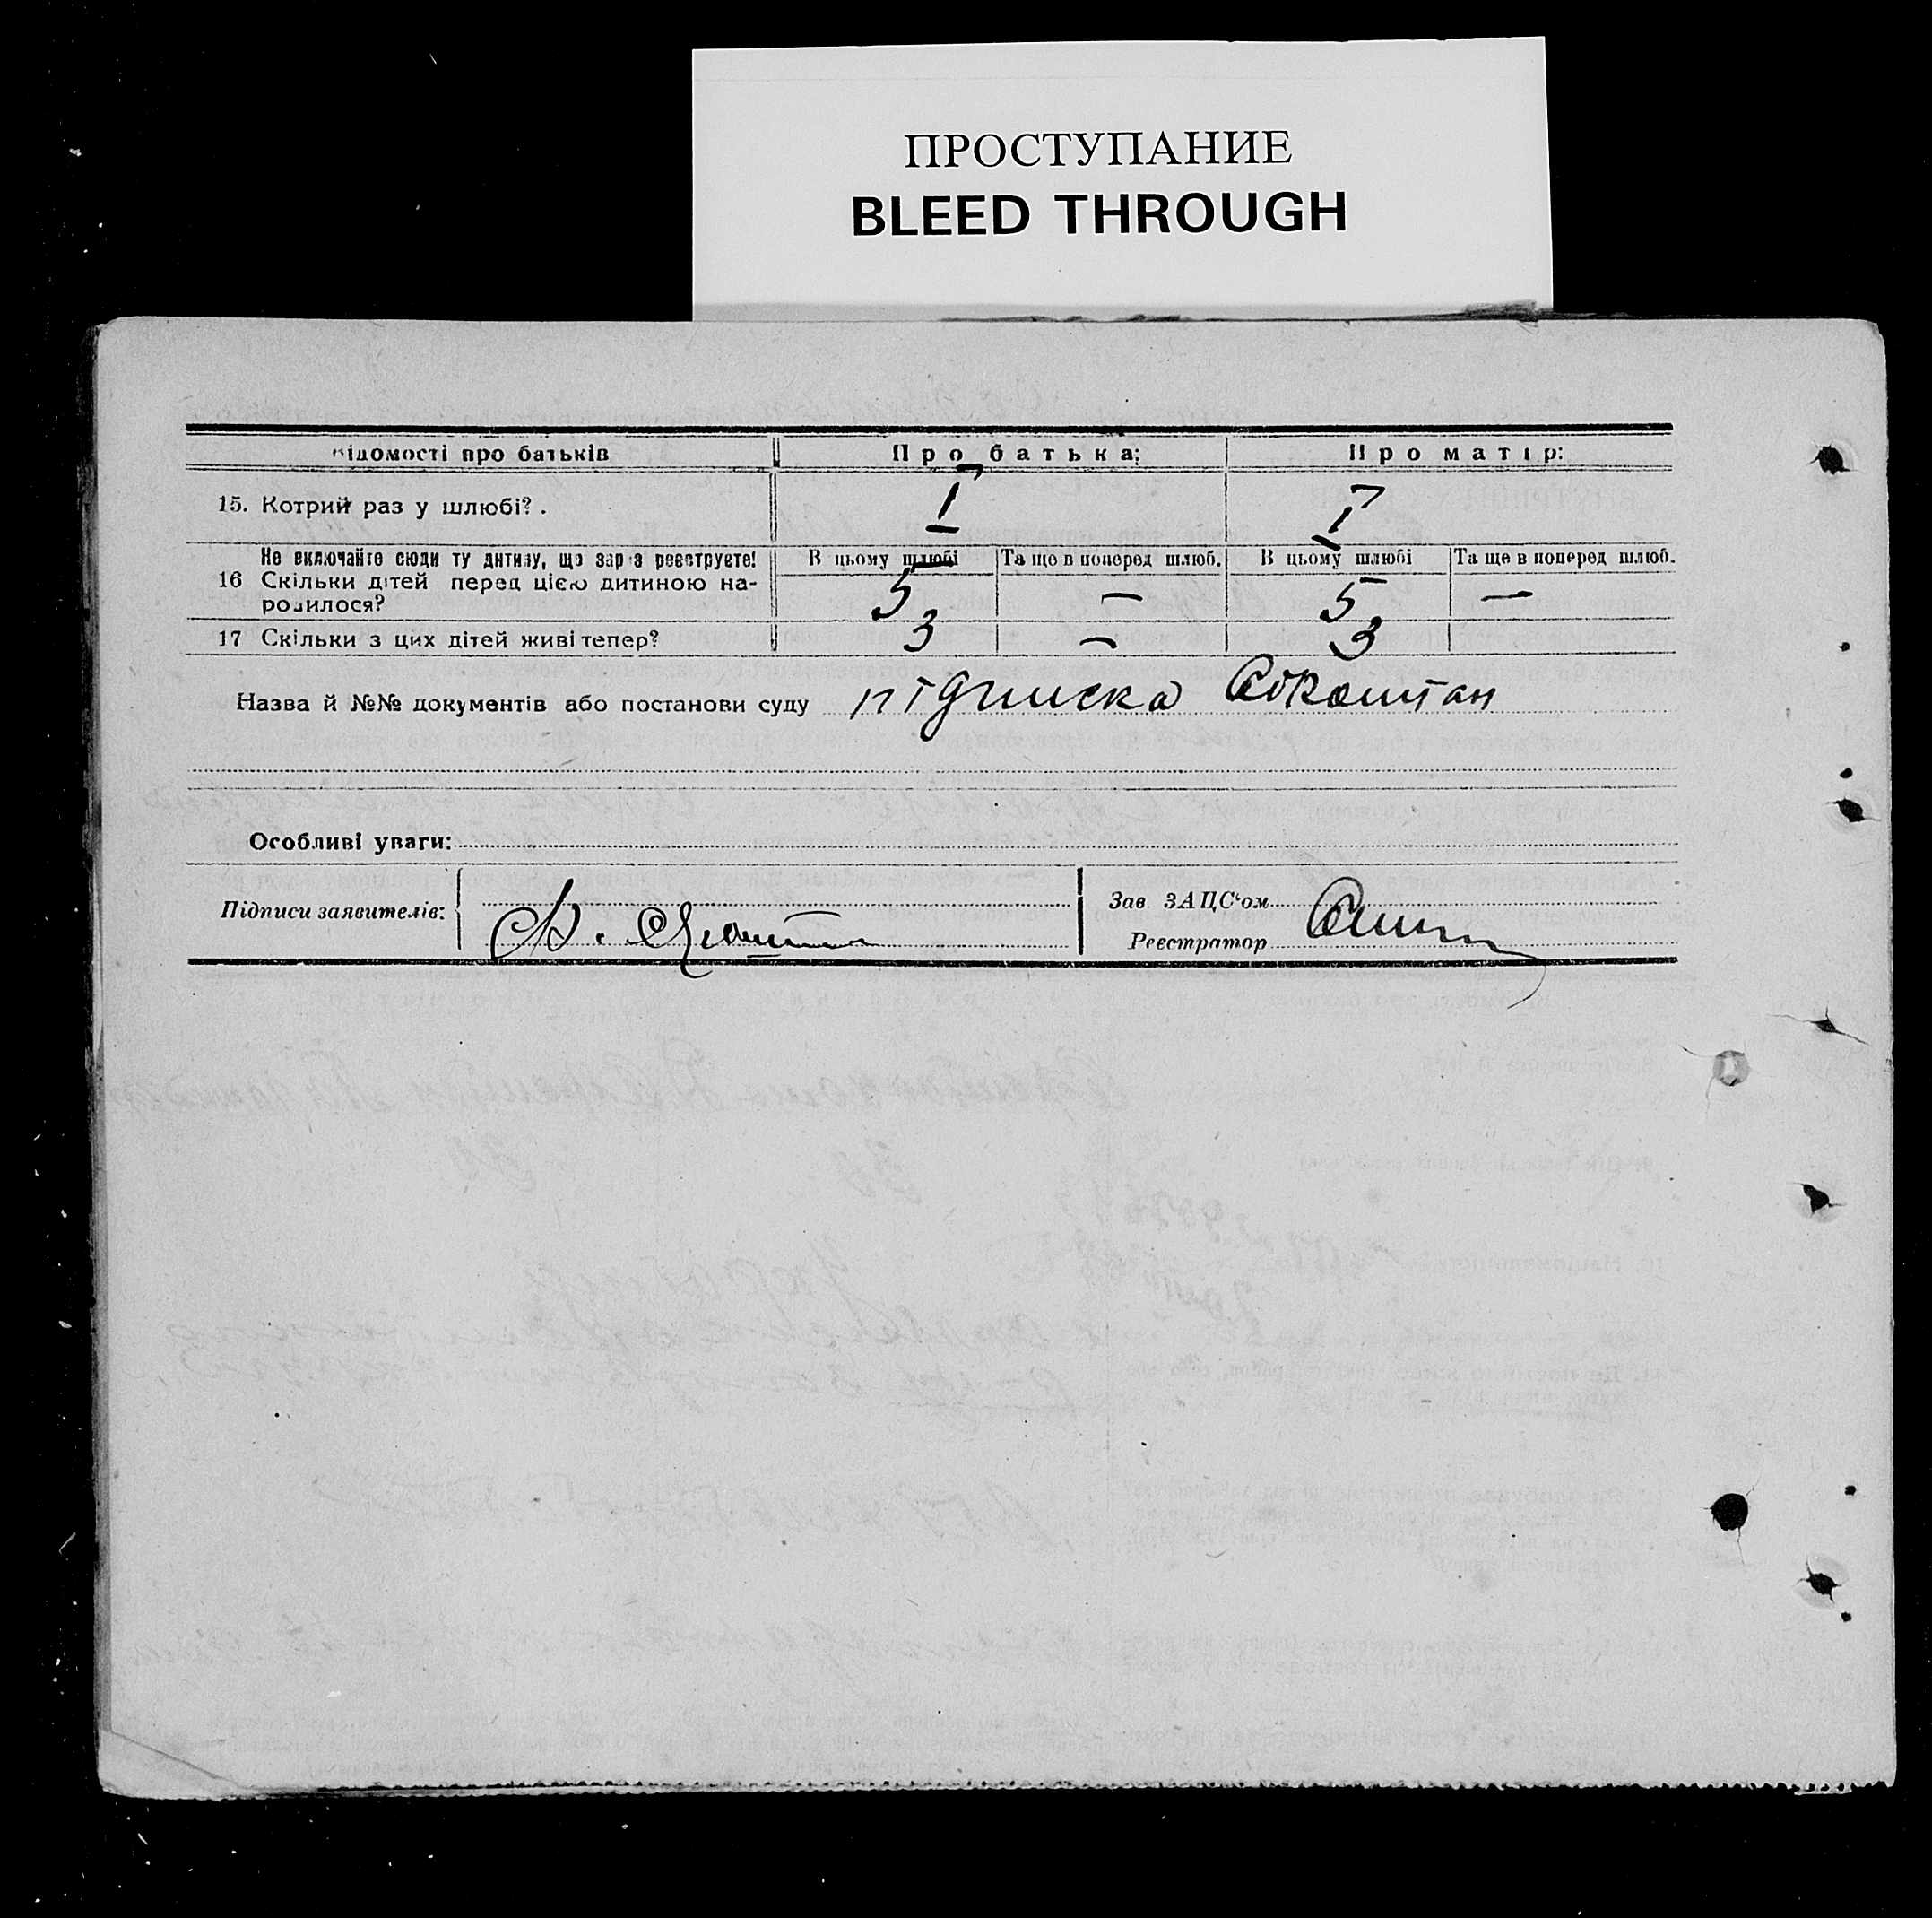 ПРОСТУПАНИЕ
BLEED THROUGH
відомості про батьків Про батька: Про матір:
15. Котрий раз у шлюбі?. I I
Не включайте сюди ту дитину, що зараз реєструєте! В цьому шлюбі Та ще в поперед шлюб. В цьому шлюбі Та ще в поперед шлюб.
16 Скільки дітей перед цією дитиною на- 5 — 5 —
родилося?
17 Скільки з цих дітей живі тепер? 3 — 3
Назва й №№ документів або постанови суду підписка
Особливі уваги:
Підписи заявителів:
Зав ЗАЦС‘ом
Реєстратор